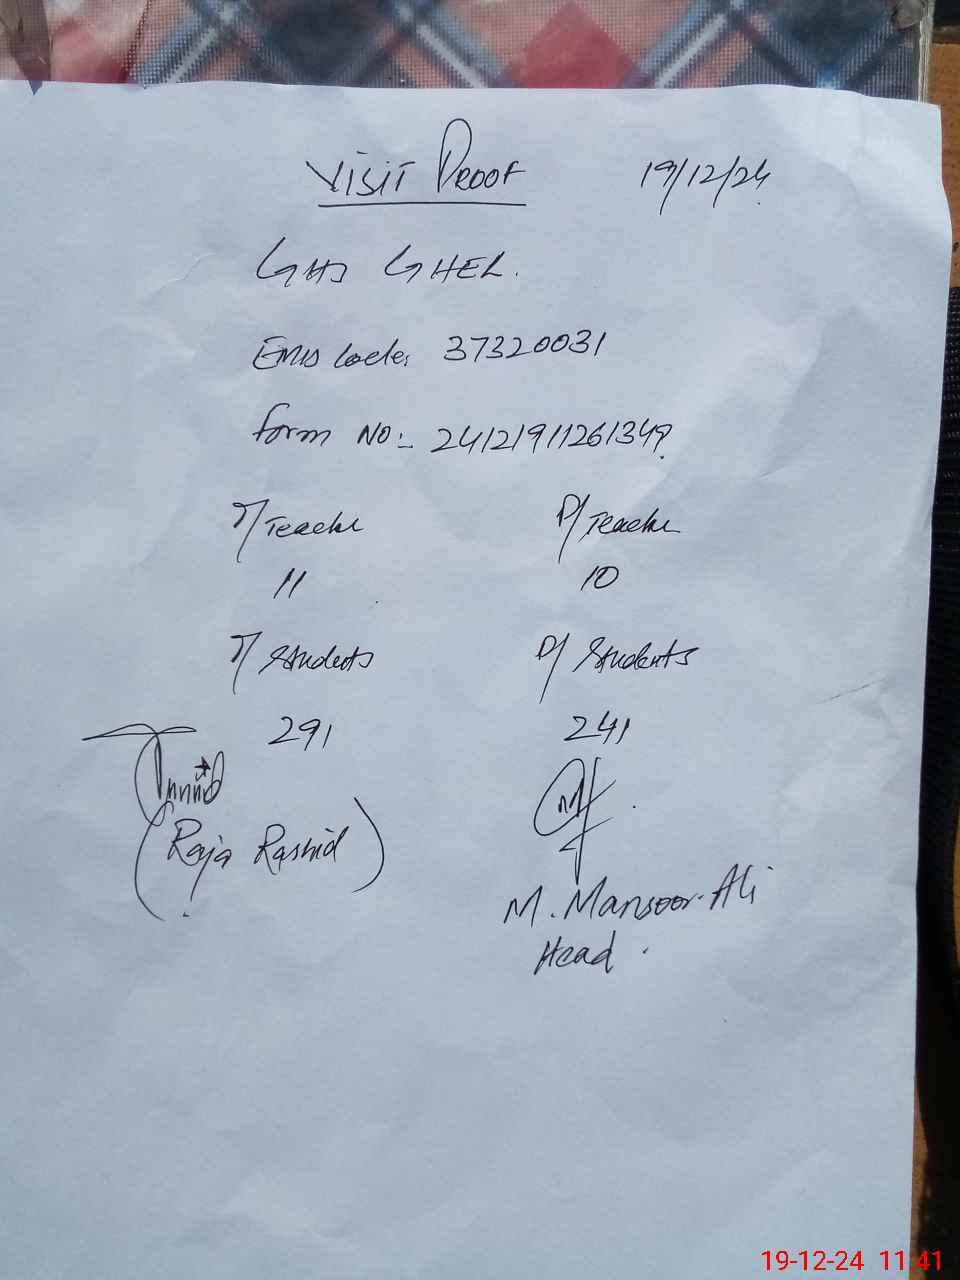 Visit Proof 19/12/24
GHS GHEL.
EMIS Code: 37320031
Form No:- 24121911261349
T/Teacher P/Teacher
11 10
T/Students P/Students
291 241
(Raja Rashid)
M. Mansoor Ali
Head.
19-12-24 11:41